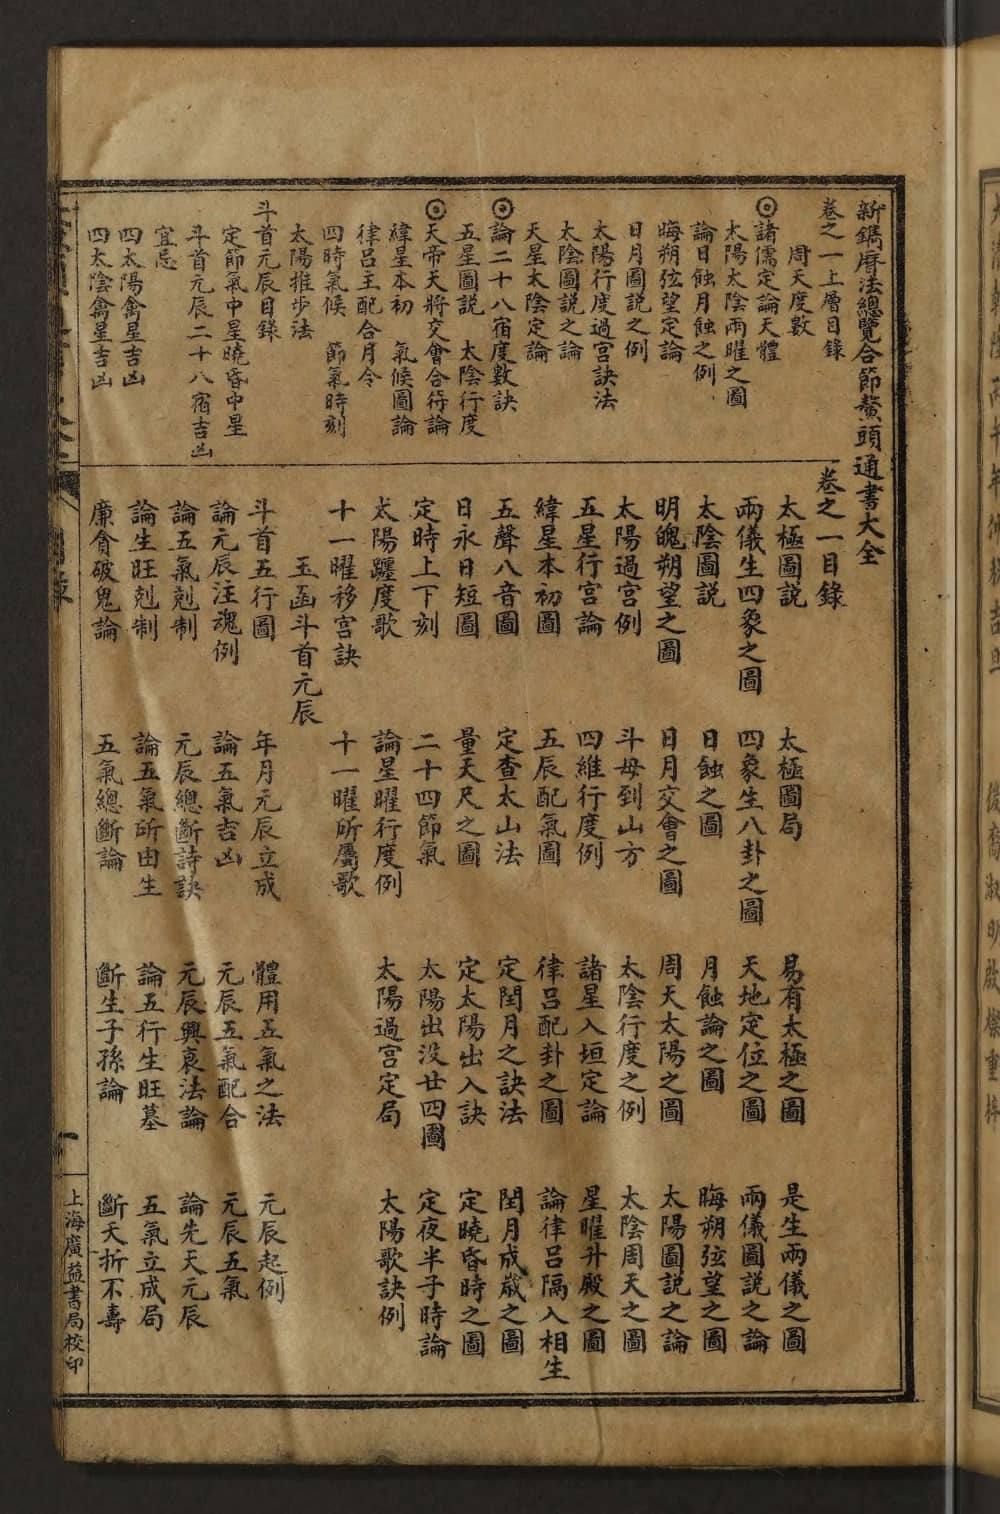 新鐫曆法總覽合節鰲頭通書大全
卷之一上層目錄
周天度數
⊙諸儒定論天體
太陽太陰兩曜之圖
論日蝕月蝕之例
晦朔弦望定論
日月圖説之例
太陽行度過宮訣法
太陰圖説之論
天星太陰定論
⊙論二十八宿度數訣
五星圖説　太陰行度
⊙天帝天將交會合符論
緯星本初　氣候圖論
律呂王配合月令
四時氣候　節氣時刻
太陽推步法
斗首元辰目錄
定節氣中星曉昏中星
斗首元辰二十八宿吉凶
宜忌
四太陽禽星吉凶
四太陰禽星吉凶
卷之一目錄
太極圖説　太極圖局　易有太極之圖　是生兩儀之圖
兩儀生四象之圖　四象生八卦之圖　天地定位之圖　兩儀圖説之論
太陰圖説　日蝕之圖　月蝕論之圖　晦朔弦望之圖
明魄朔望之圖　日月交會之圖　周天太陽之圖　太陽圖説之論
太陽過宮例　斗母到山方　太陰行度之例　太陰周天之圖
五星行宮論　四維行度例　諸星入垣定論　星曜升殿之圖
緯星本初圖　五辰配氣圖　律呂配卦之圖　論律呂隔入相生
五聲八音圖　定查太山法　定閏月之訣法　閏月成歲之圖
日永日短圖　量天尺之圖　定太陽出入訣　定曉昏時之圖
定時上下刻　二十四節氣　太陽出没廿四圖　定夜半子時論
太陽躔度歌　論星曜行度例　太陽過宮定局　太陽歌訣例
十一曜移宮訣　十一曜所屬歌
玉函斗首元辰
斗首五行圖　年月元辰立成　體用五氣之法　元辰起例
論元辰注魂例　論五氣吉凶　元辰五氣配合　元辰五氣
論五氣剋制　元辰總斷詩訣　元辰興衰法論　論先天元辰
論生旺剋制　論五氣所由生　論五行生旺墓　五氣立成局
廉貪破鬼論　五氣總斷論　斷生子孫論　斷夭折不壽
上海廣益書局校印